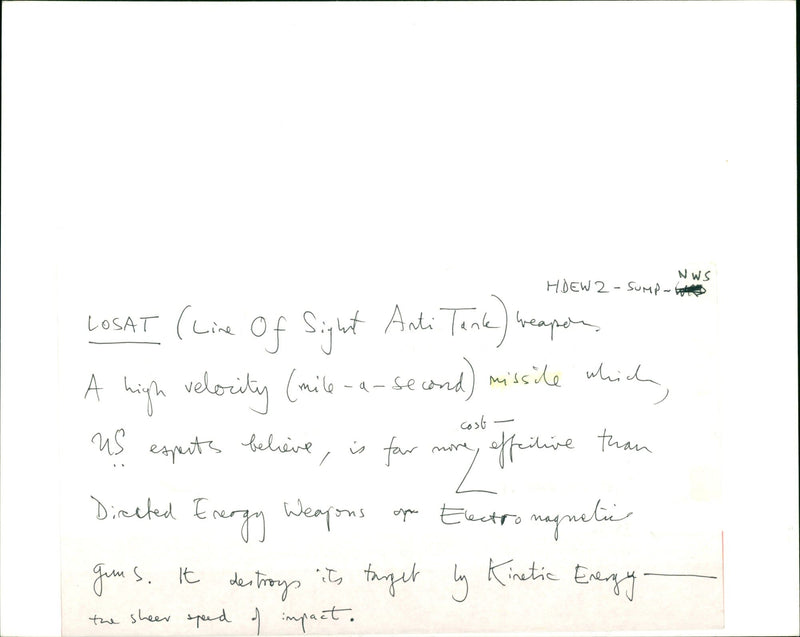 NWS
HDEW2 - SUMP -
LOSAT (Line Of Sight Anti Tank) Weapon.
A high velocity (mile-a-second) missile which,
US experts believe, is far more cost-effective than
Directed Energy Weapons or Electromagnetic
guns. It destroys its target by Kinetic Energy —
the sheer speed of impact.